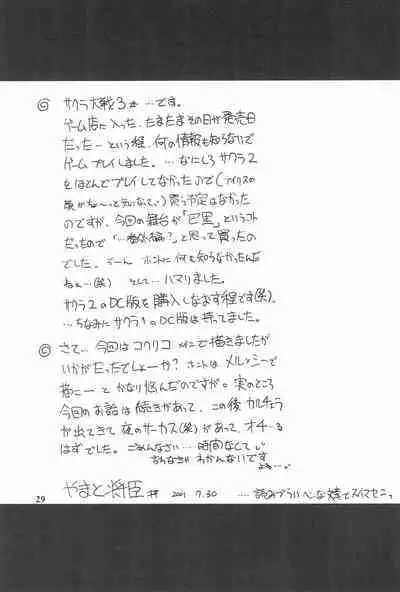 ◎ サクラ大戦3 …です。
ゲーム店に入った、たまたまその日が発売日
だったーという程、何の情報も知らないで
ゲームプレイしました。…なにしろサクラ2
をほとんどプレイしてなかったので(アイリスの
気になって)買う予定はなかった
のですが、今回の舞台が「巴里」というコト
だったので「…番外編?」と思って買ったの
でした。うーん ホントに何も知らなかったんだ
ねぇ…(笑) そして…ハマリました。
サクラ2のDC版を購入しなおす程です(笑)。
…ちなみにサクラ1のDC版は持ってました。
◎ さて…今回はコクリコメインで描きましたが
いかがだったでしょーか? ホントはメルとシーで
描こーと かなり悩んだのですが。実のところ
今回のお話は続きがあって、この後 カルチェラ
が出てきて 夜のサーカス(笑)があって、オチ…る
はずでした。ごめんなさい…時間なくて
わかんないです
やまと将臣 2001 7.30 …読みづらいヘンな スイマセン
29